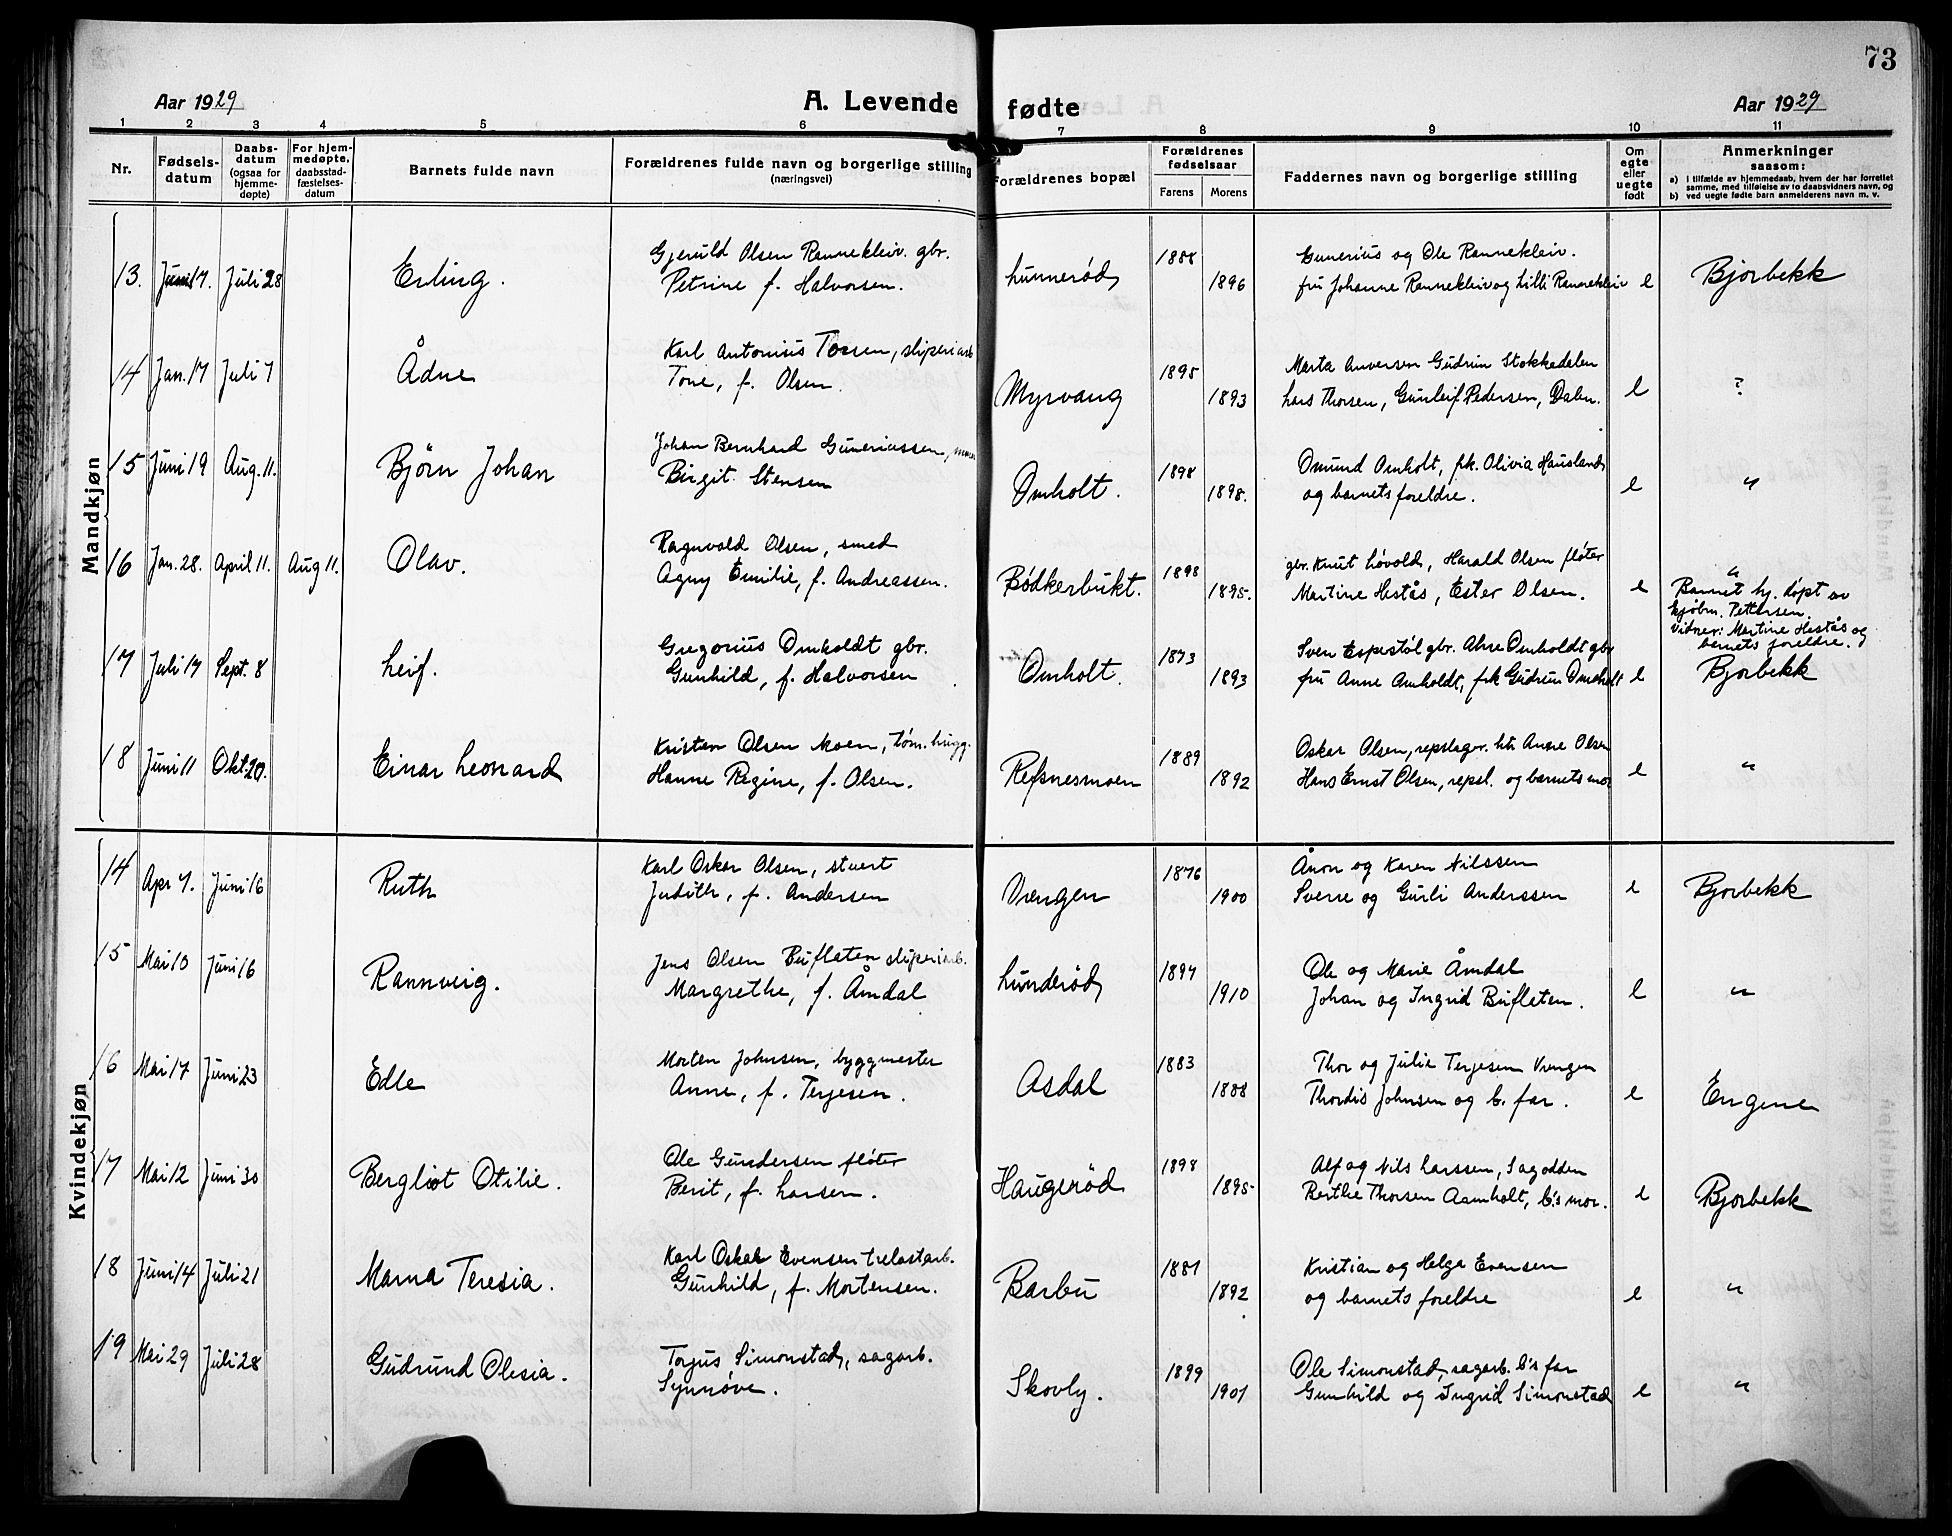 73
Aar 1929
A. Levende fødte
Aar 1929
1 2 3 4 5 6 7 8 9 10 11
Nr.
Fødsels-
datum
Daabs-
datum
(ogsaa for
hjemme-
døpte)
For hjem-
medøpte,
daabsstad-
fæstelses-
datum
Barnets fulde navn
Forældrenes fulde navn og borgerlige stilling
(næringsvei)
Forældrenes bopæl
Forældrenes
fødselsaar
Farens Morens
Faddernes navn og borgerlige stilling
Om
egte
eller
uegte
født
Anmerkninger
saasom:
a) i tilfælde av hjemmedaab, hvem der har forrettet
samme, med tilføielse av to daabsvidners navn, og
b) ved uegte fødte barn anmelderens navn m. v.
Mandkjøn
13. Juni 17. Juli 28 Erling.
Gjeruld Olsen Rannekleiv. gbr.
Petrine f. Halvorsen.
Lunnerød 1888 1896
Gunerius og Ole Rannekleiv.
fru Johanne Rannekleiv og Lilli Rannekleiv
e Bjorbekk
14 Jan. 17 Juli 7 Ådne
Karl Antonius Torsen, sliperiarb
Tone, f. Olsen.
Myrvang 1895 1893
Marta Anversen Gudrun Stokkedalen
Lars Thorsen, Gunleif Pedersen, Dalen.
e ?
15 Juni 19 Aug. 11. Bjørn Johan
Johan Bernhard Guneriussen,
Birgit Stensen
Omholt. 1898 1898.
Omund Omholt, frk. Olivia Hausland
og barnets foreldre.
e "
16 Jan. 28. April 11. Aug 11. Olav.
Ragnvald Olsen, smed
Agny Emilie, f. Andreassen.
Bødkerbukt. 1898 1895.
gbr. Knut Løvold, Harald Olsen fløter
Martine Hestås, Ester Olsen.
e "
Barnet hj. døpt av
Pettersen.
Vidner: Martine Hestås og
barnets foreldre.
17 Juli 17 Sept. 8 Leif.
Gregorius Omholdt gbr.
Gunhild, f. Halvorsen
Omholt. 1873 1893
Sven Espestøl gbr. Omholdt gbr
fru Anne Omholdt, frk Gudrun Omholt
e Bjorbekk
18 Juni 11 Okt. 20. Einar Leonard
Kristen Olsen Moen, tøm.hugg.
Hanne Regine, f. Olsen.
Refsnesmoen 1889 1892
Oskar Olsen, repslager. Anne Olsen
Hans Ernst Olsen, repsl. og barnets mor
e "
Kvindekjøn
14 Apr 7. Juni 16 Ruth
Karl Oskar Olsen, stuert
Judith, f. Andersen
Vrengen 1876 1900
Aron og Karen Nilssen
Sverre og Gurli Anderssen
e Bjorbekk
15 Mai 10 Juni 16 Rannveig.
Jens Olsen Bufleten sliperiarb.
Margrethe, f. Åmdal
Lunderød 1894 1910
Ole og Marie Åmdal
Johan og Ingrid Bufleten.
e "
16 Mai 17 Juni 23 Edle
Morten Johnsen, byggmester
Anne, f. Terjesen.
Asdal 1883 1888
Thor og Julie Terjesen Vrengen
Thordis Johnsen og b. far.
e Engene
17 Mai 12 Juni 30 Bergliot Otilie.
Ole Gundersen fløter
Berit, f. Larsen.
Haugerød 1898 1895
Alf og Nils Larssen, Sagodden
Berthe Thorsen Aamholt, b.'s mor.
e Bjorbekk
18 Juni 14 Juli 21 Marna Teresia.
Karl Oskar Evensen trelastarb.
Gunhild, f. Mortensen.
Barbu 1881 1892
Kristian og Helga Evensen
og barnets foreldre
e "
19 Mai 29 Juli 28 Gudrund Olesia.
Torjus Simonstad, sagarb.
Synnøve.
Skovly. 1899 1901
Ole Simonstad, sagarb. b's far
Gunhild og Ingrid Simonstad
e "